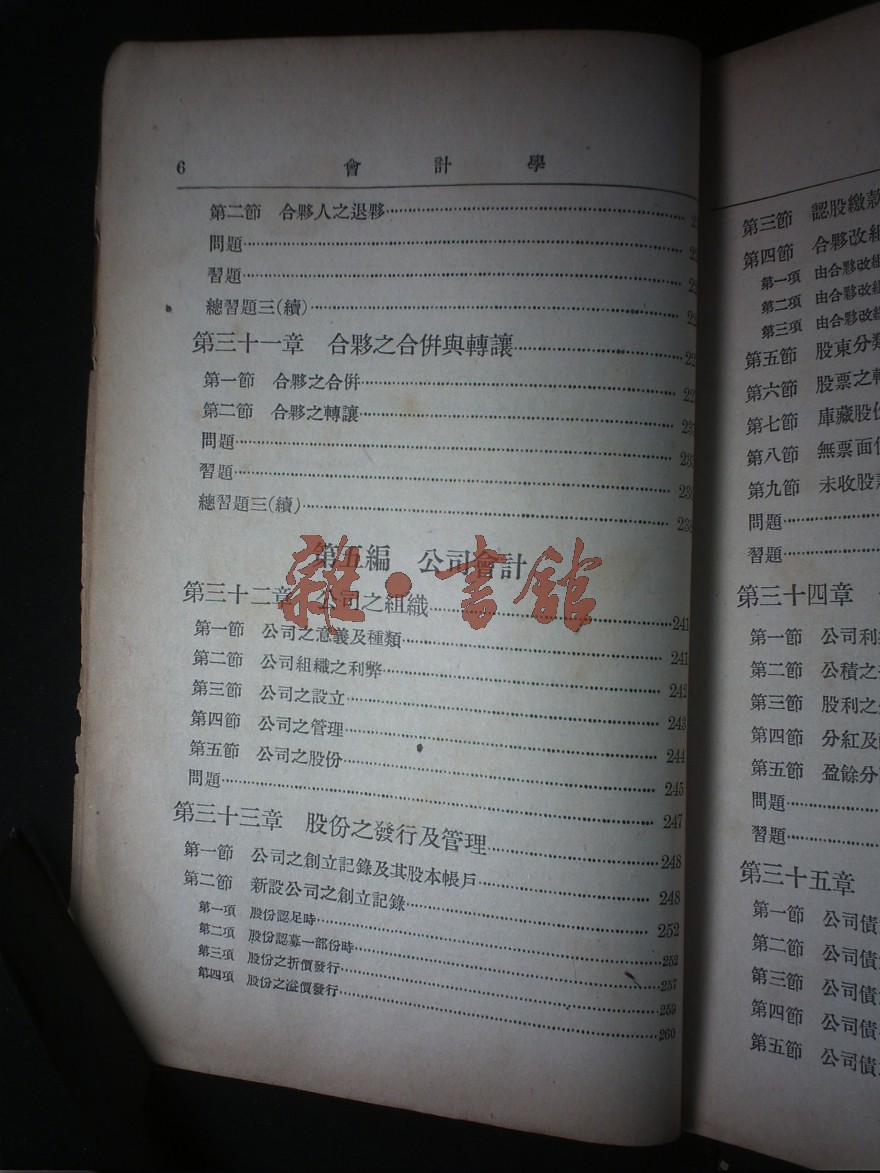 6 會計學
第二節 合夥人之退夥
問題
習題
總習題三(續)
第三十一章 合夥之合倂與轉讓
第一節 合夥之合倂
第二節 合夥之轉讓
問題
習題
總習題三(續)
第五編 公司會計
雜·書館
第三十二章 公司之組織 241
第一節 公司之意義及種類 241
第二節 公司組織之利弊 242
第三節 公司之設立 243
第四節 公司之管理 244
第五節 公司之股份 245
問題 247
第三十三章 股份之發行及管理 248
第一節 公司之創立記錄及其股本帳戶 248
第二節 新設公司之創立記錄 252
第一項 股份認足時 252
第二項 股份認募一部份時 257
第三項 股份之折價發行 259
第四項 股份之溢價發行 260
第三節 認股繳款
第四節 合夥改組
第一項 由合夥改組
第二項 由合夥改組
第三項 由合夥改組
第五節 股東分類
第六節 股票之轉
第七節 庫藏股份
第八節 無票面
第九節 未收股
問題
習題
第三十四章
第一節 公司利
第二節 公積之
第三節 股利之
第四節 分紅及
第五節 盈餘分
問題
習題
第三十五章
第一節 公司債
第二節 公司債
第三節 公司債
第四節 公司債
第五節 公司債